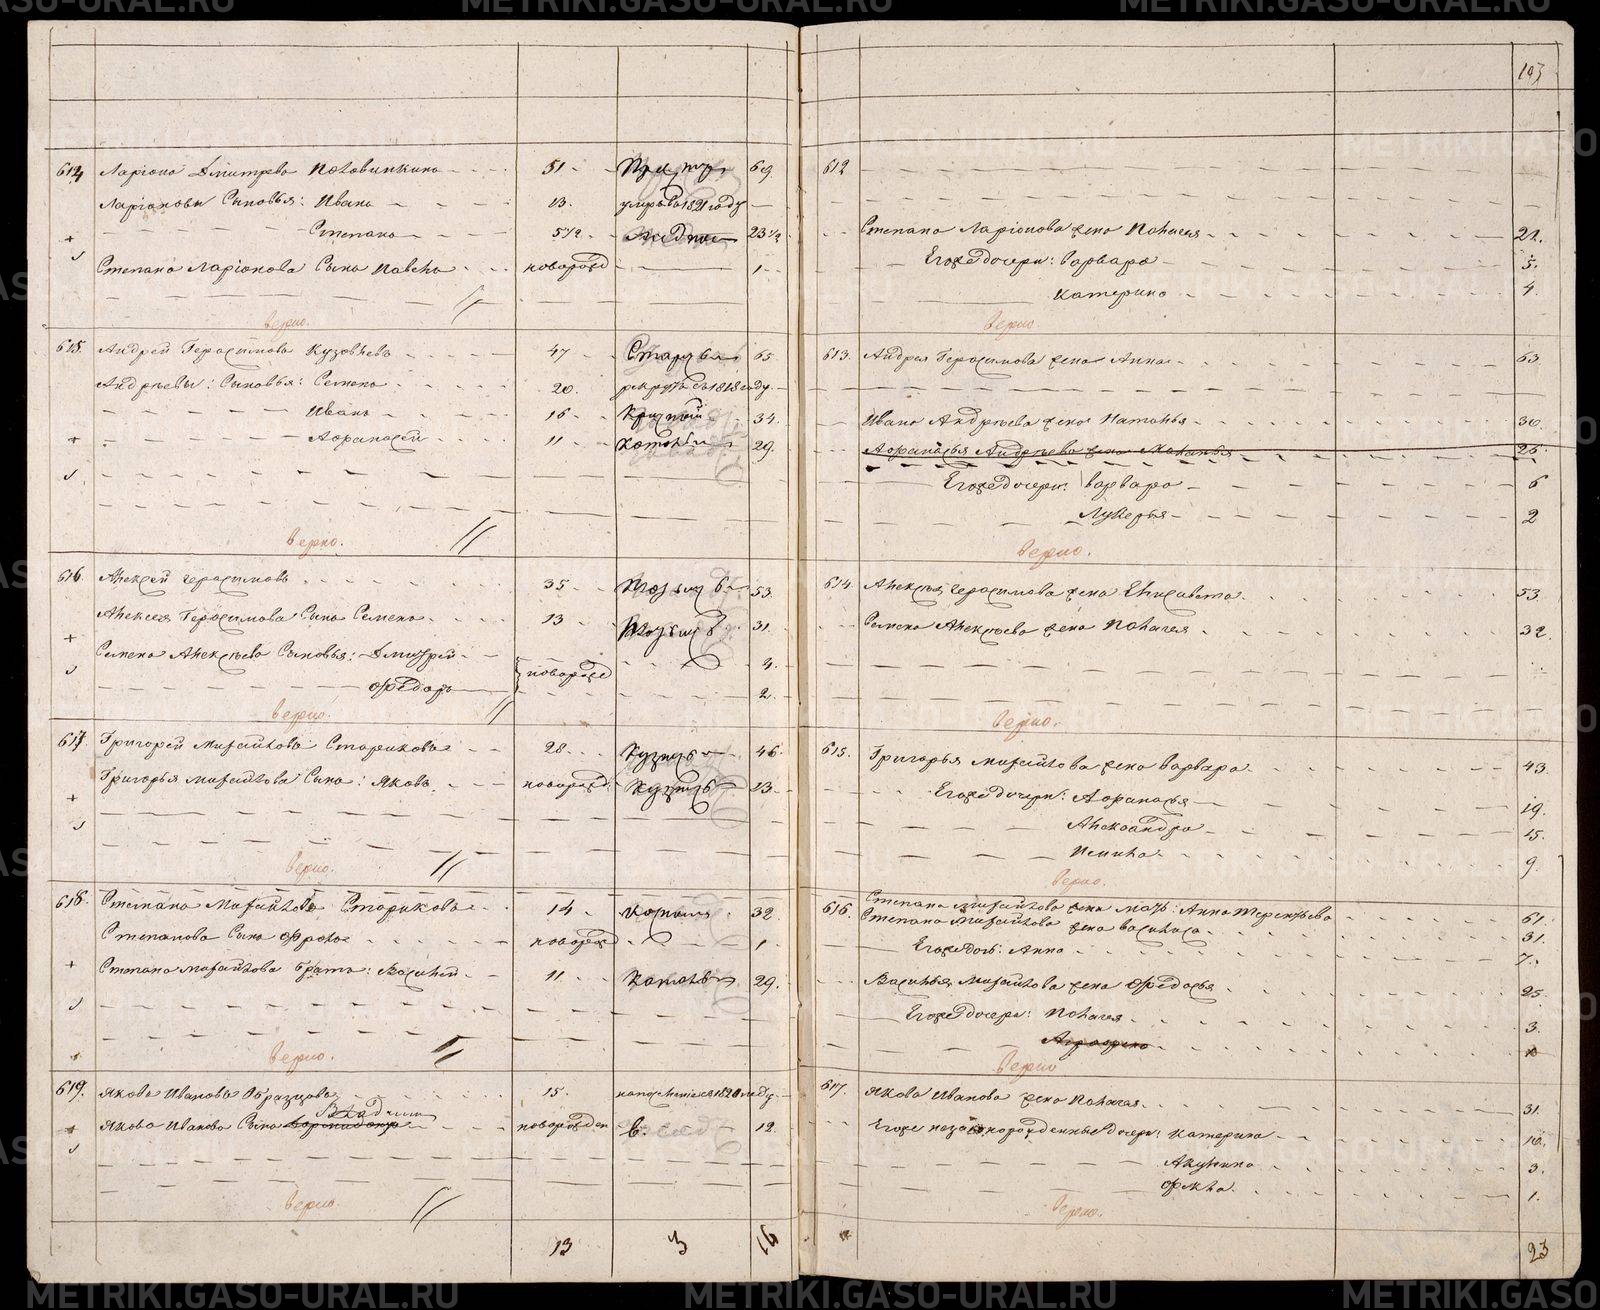 193
614 Ларіонъ Дмитрева Половинкина 51 69
Ларіоновы Сыновья: Иванъ 13. умръ въ 1821 году
Степанъ 5 1/2 23 1/2
Степана Ларіонова Сынъ Павелъ новорожд 1
Верно.
615. Андрей Герасимовъ Кузовлевъ 47 65
Андреевы: Сыновья: Семенъ 20. рекрутъ съ 1818 году.
Иванъ 16 34.
Афанасей 11 29.
Верно.
616. Алексей Герасимовъ 35 53.
Алексея Герасимова Сынъ Семенъ 13 31.
Семена Алексеева Сыновья: Дмитрей 4.
Федоръ новорожд 2.
Верно.
617. Григорей Михайловъ Стариковъ 28 46
Григорья Михайлова Сынъ: Яковъ новорожд. 13
Верно.
618. Степанъ Михайловъ Стариковъ 14 32.
Степанова Сынъ Фролъ новорожд 1
Степана Михайлова братъ: Василей 11 29.
Верно.
619. Якова Иванова Образцова 15. 1820 году.
Владим
Якова Иванова Сынъ новорожден 12.
Верно.
13 3 16
612
Степана Ларіонова жена Палагея 22.
Егоже дочери: Варвара 5.
Катерина 4.
Верно
613. Андрея Герасимова жена Анна 63
Ивана Андреева жена Наталья 30.
Афанасья Андреева жена Маланья 26.
Егоже дочери: Варвара 6
Лукерья 2
Верно.
614. Алексея Герасимова жена Елисавета 53.
Семена Алексеева жена Палагея 32.
Верно.
615. Григорья Михайлова жена Варвара 43.
Егоже дочери: Афанасья 19.
Александра 15.
9.
Верно.
616. Степана Михайлова мать: Анна Терентьева 61.
Степана Михайлова жена Василиса 31.
Егоже дочь: Анна 7.
Василья Михайлова жена Федосья 25.
Егоже дочери: Палагея 3.
Аграфена
Верно
617. Якова Иванова жена Палагея 31.
Егоже незаконорожденные дочери: Катерина 10.
Акулина 3.
Фекла 1.
Верно.
23
METRIKI.GASO-URAL.RU